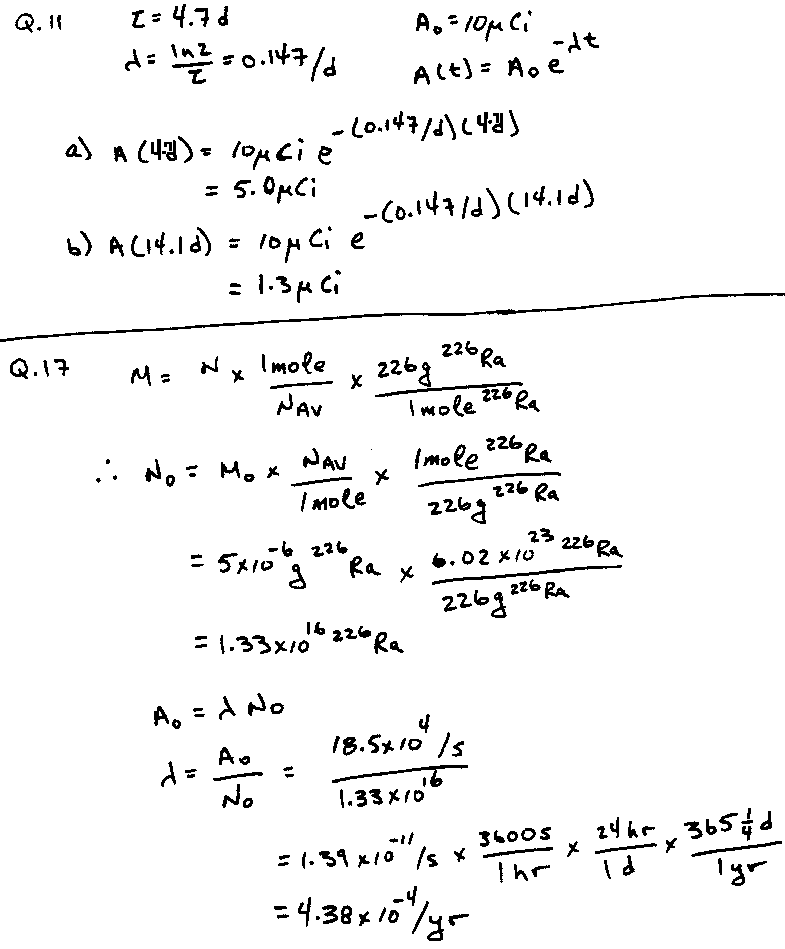 Q.11 τ = 4.7d A₀ = 10μCi
λ = ln2/τ = 0.147/d A(t) = A₀ e^(-λt)
a) A(4.7d) = 10μCi e^(-(0.147/d)(4.7d))
= 5.0μCi
b) A(14.1d) = 10μCi e^(-(0.147/d)(14.1d))
= 1.3μCi
Q.17 M = N x 1mole/N_AV x 226g ²²⁶Ra/1mole ²²⁶Ra
∴ N₀ = M₀ x N_AV/1mole x 1mole ²²⁶Ra/226g ²²⁶Ra
= 5x10⁻⁶g ²²⁶Ra x 6.02x10²³ ²²⁶Ra/226g ²²⁶Ra
= 1.33x10¹⁶ ²²⁶Ra
A₀ = λN₀
λ = A₀/N₀ = 18.5x10⁴/s / 1.33x10¹⁶
= 1.39x10⁻¹¹/s x 3600s/1hr x 24hr/1d x 365¼d/1yr
= 4.38x10⁻⁴/yr